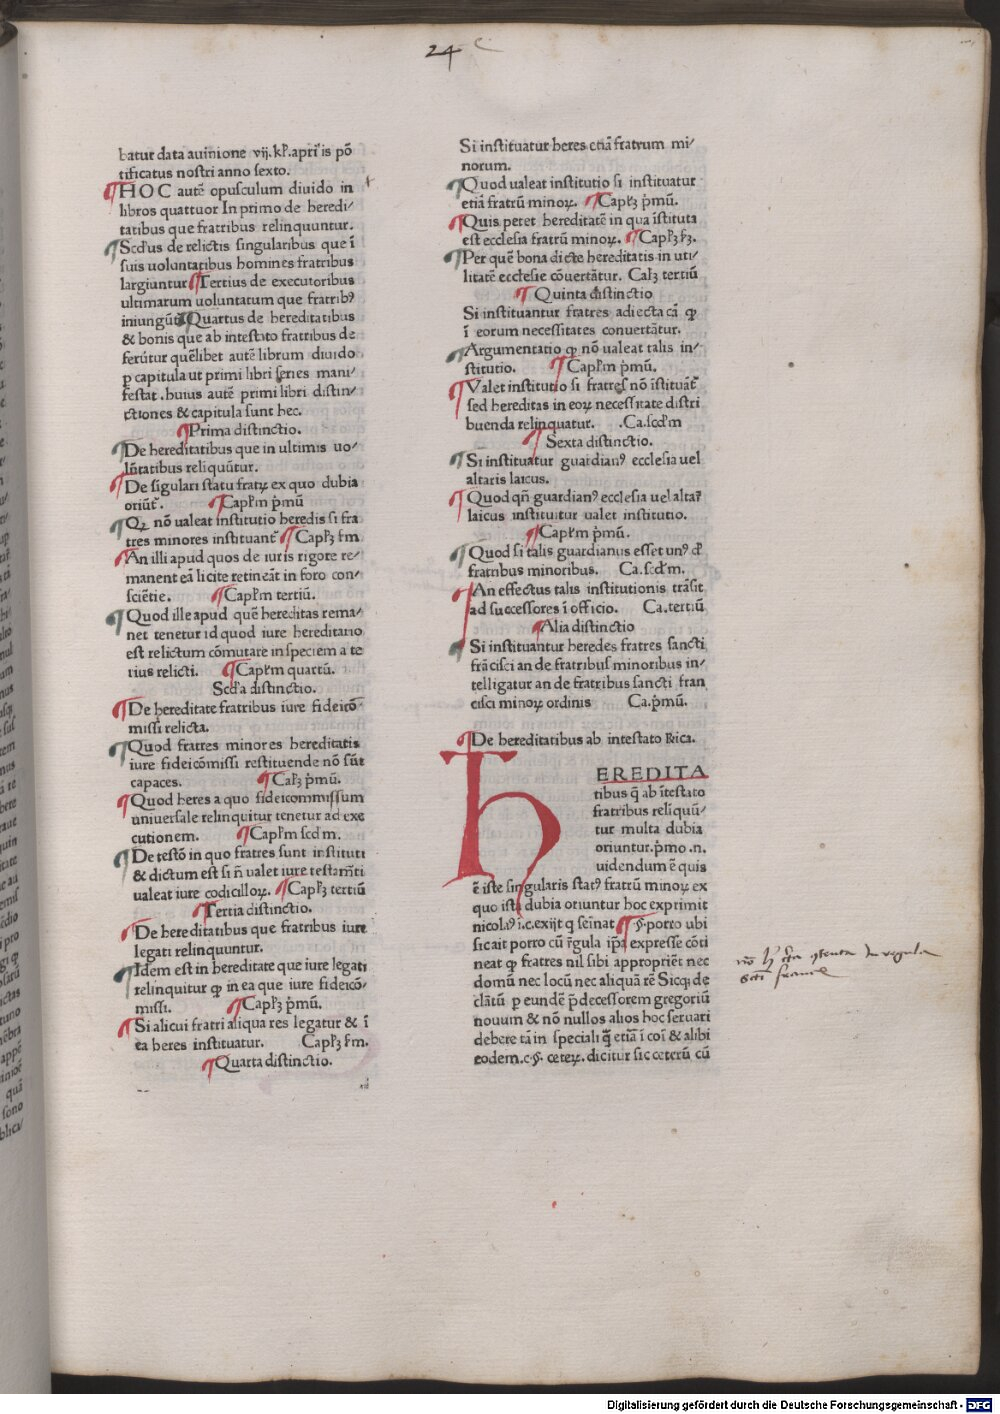 24 c
batur data avinione vij. kł. apriłis põ
tificatus nostri anno sexto.
HOC autẽ opusculum diuido in
libros quattuor In primo de heredi/
tatibus que fratribus relinquuntur.
Scďus de relictis singularibus que ĩ
suis uoluntatibus homines fratribus
largiuntur Tertius de executoribus
ultimarum uoluntatum que fratribꝰ
iniungũt Quartus de hereditatibus
& bonis que ab intestato fratribus de
ferútur quẽlibet autẽ librum diuido
ꝑ capitula ut primi libri series mani/
festat . huius autẽ primi libri distin/
ctiones & capitula sunt hec.
Prima distinctio.
De hereditatibus que in ultimis uo/
lũtatibus reliquũtur.
De sigulari statu fratꝝ ex quo dubia
oriũt᷑. Capłm ṗmũ
Qꝫ nõ ualeat institutio heredis si fra
tres minores instituant᷑ Capłꝫ ẜm
An illi apud quos de iuris rigore re/
manent eã licite retineãt in foro con/
sciẽtie. Capłm tertiũ.
Quod ille apud quẽ hereditas rema/
net tenetur id quod iure hereditario
est relictum cõmutare in speciem a te
rius relicti. Capłm quartũ.
Scďa distinctio.
De hereditate fratribus iure fideicõ/
missi relicta.
Quod fratres minores hereditatis
iure fideicõmissi restituende nõ sũt
capaces. Capłꝫ ṗmũ.
Quod heres a quo fideicommissum
uniuersale relinquitur tenetur ad exe
cutionem. Capłm scďm.
De testõ in quo fratres sunt instituti
& dictum est si ñ ualet iure testam̃ti
ualeat iure codicilloꝝ. Capłꝫ tertiũ
Tertia distinctio.
De hereditatibus que fratribus iure
legati relinquuntur.
Idem est in hereditate que iure legati
relinquitur ꝙ in ea que iure fideicõ/
missi. Capłꝫ ṗmũ.
Si alicui fratri aliqua res legatur & ĩ
ea heres instituatur. Capłꝫ ẜm.
Quarta distinctio.
Si instituatur heres etiã fratrum mi/
norum.
Quod ualeat institutio si instituatur
etiã fratrũ minoꝝ. Capłꝫ ṗmũ.
Quis petet hereditatẽ in qua ĩstituta
est ecclesia fratrũ minoꝝ. Capłꝫ ẜꝫ.
Per quẽ bona dicte hereditatis in uti/
litatẽ ecclesie cõuertãtur. Całꝫ tertiũ
Quinta distinctio
Si instituantur fratres adiecta cã ꝙ
ĩ eorum necessitates conuertãtur.
Argumentatio ꝙ nõ ualeat talis in/
stitutio. Capłm ṗmũ.
Valet institutio si fratres nõ ĩstituãt᷑
sed hereditas in eoꝝ necessitate distri
buenda relinquatur. .Ca.scďm
Sexta distinctio.
Si instituatur guardianꝰ ecclesia uel
altaris laicus.
Quod qñ guardianꝰ ecclesia uel altar᷑
laicus instituitur ualet institutio.
Capłm ṗmũ.
Quod si talis guardianus esset unꝰ ď
fratribus minoribus. Ca.scďm.
An effectus talis institutionis trãsit
ad successores ĩ officio. Ca.tertiũ
Alia distinctio
Si instituantur heredes fratres sancti
frãcisci an de fratribus minoribus in/
telligatur an de fratribus sancti fran
cisci minoꝝ ordinis Ca.ṗmũ.
De hereditatibus ab intestato Rica.
HEREDITA
tibus q̃ ab ĩtestato
fratribus reliquũ/
tur multa dubia
oriuntur.ṗmo .n.
uidendum ẽ quis
ẽ iste singularis statꝰ fratrũ minoꝝ ex
quo ista dubia oriuntur hoc exprimit
nicolꝰ i.c.exijt q seĩnat §.porro ubi
sic ait porro cũ r̃gula ip̃a expresse cõti
neat ꝙ fratres nil sibi approprient nec
domũ nec locũ nec aliquã rẽ Sicqꝫ de
clãtũ ꝑ eundẽ p̃decessorem gregoriũ
nouum & nõ nullos alios hoc seruari
debere tã in speciali q̃ꝫ etiã ĩ coĩ & alibi
eodem.c.§. ceteꝝ. dicitur sic ceterũ cũ
Digitalisierung gefördert durch die Deutsche Forschungsgemeinschaft - DFG